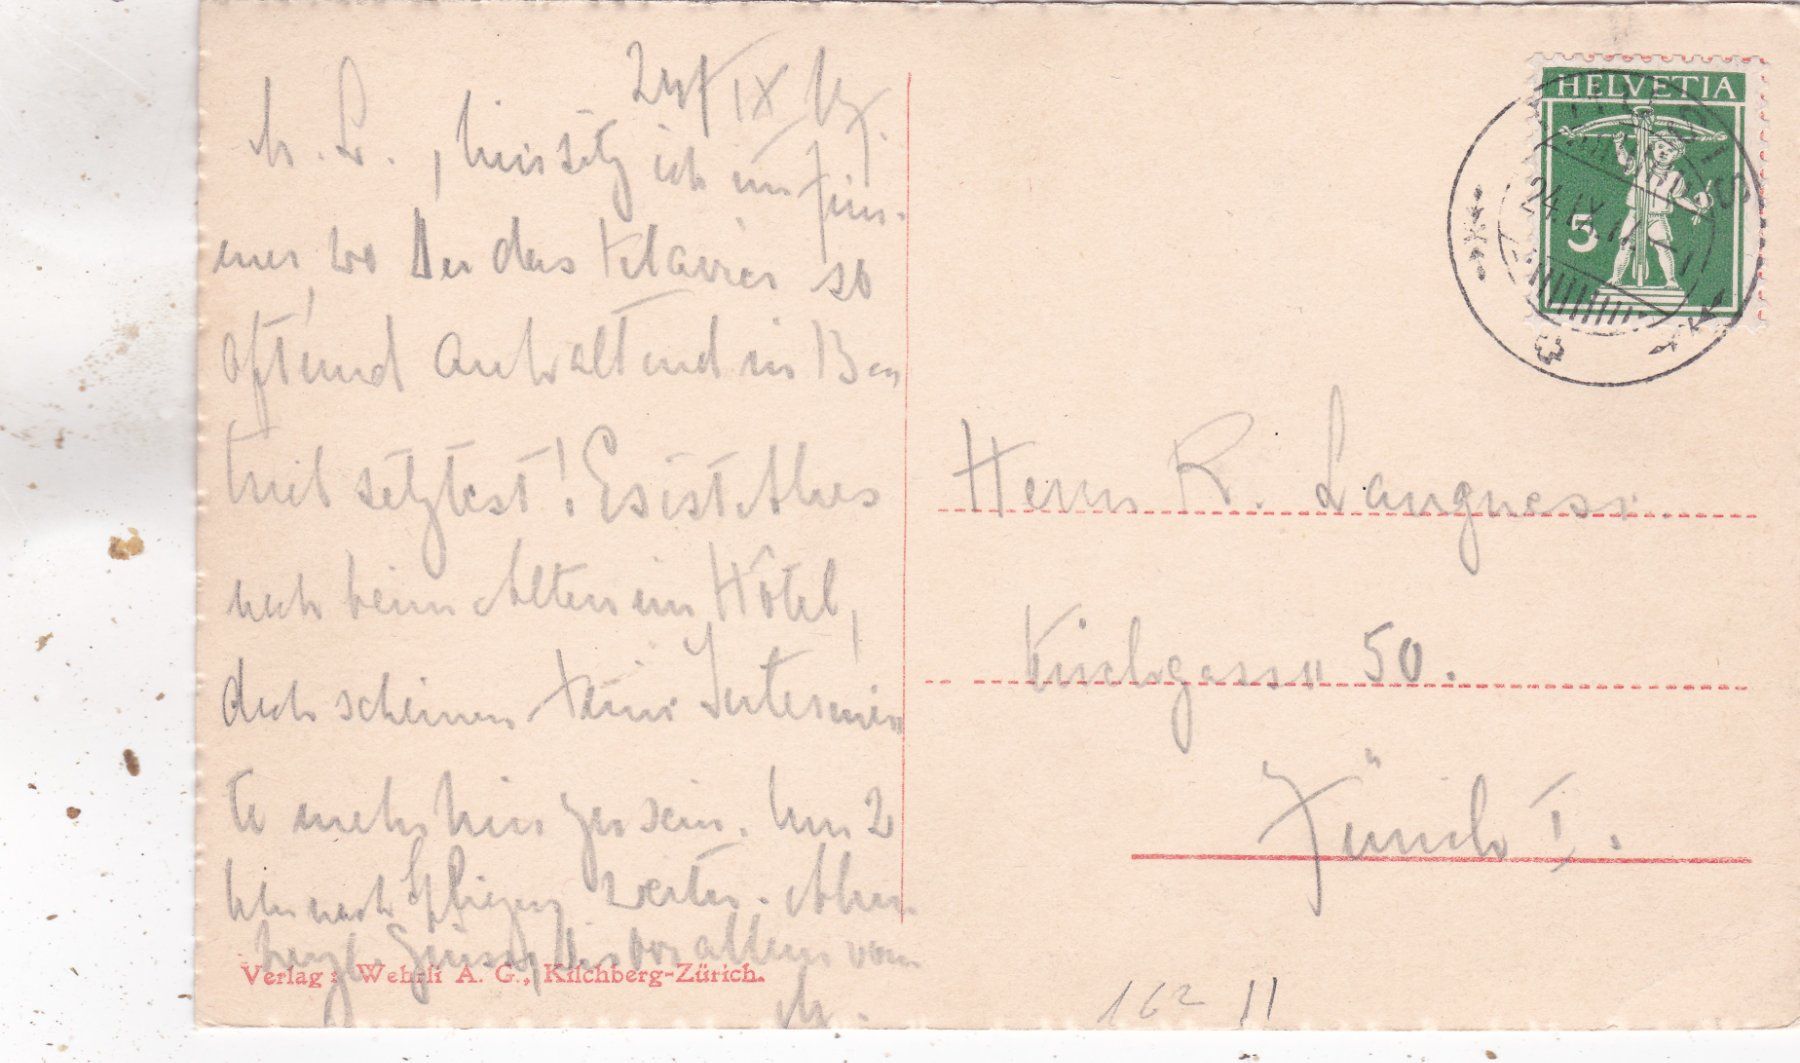 24/IX 17.
M. L., hier sitz ich im Zim-
mer, wo Du das Klavier so
oft und anhaltend in Be
trieb setztest! Es ist Alles
noch beim Alten im Hôtel,
doch scheinen keine
te mehr hier zu sein. Um 2
Uhr nach weiter. Allen
herzl. Grüsse, Dir vor allem vom
M.
Verlag: Wehrli A. G., Kilchberg-Zürich.
HELVETIA
5
24.IX.17.
Herrn R. Langness.
Kirchgasse 50.
Zürich I.
162 11